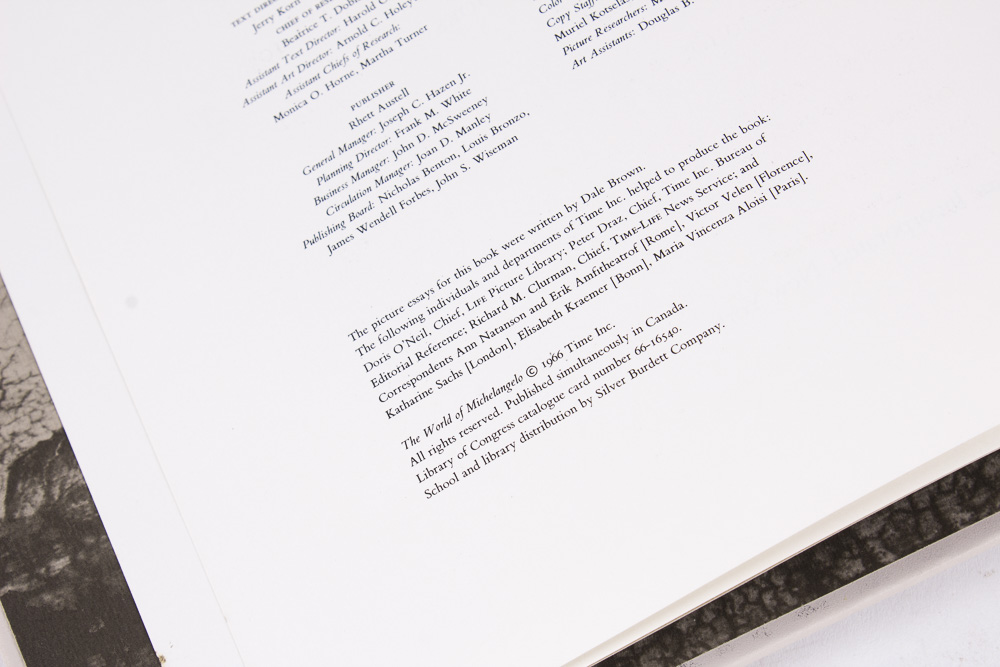 TEXT
Jerry Korn
CHIEF OF
Beatrice T.
Assistant Text Director: Harold C.
Assistant Art Director: Arnold C.
Assistant Chiefs of Research:
Monica O. Horne, Martha Turner
PUBLISHER
Rhett Austell
General Manager: Joseph C. Hazen Jr.
Planning Director: Frank M. White
Business Manager: John D. McSweeney
Circulation Manager: Joan D. Manley
Publishing Board: Nicholas Benton, Louis Bronzo,
James Wendell Forbes, John S. Wiseman
Color
Copy Staff
Muriel
Picture Researchers:
Art Assistants: Douglas B.
The picture essays for this book were written by Dale Brown.
The following individuals and departments of Time Inc. helped to produce the book:
Doris O'Neil, Chief, LIFE Picture Library; Peter Draz, Chief, Time Inc. Bureau of
Editorial Reference; Richard M. Clurman, Chief, TIME-LIFE News Service; and
Correspondents Ann Natanson and Erik Amfitheatrof [Rome], Victor Velen [Florence],
Katharine Sachs [London], Elisabeth Kraemer [Bonn], Maria Vincenza Aloisi [Paris].
The World of Michelangelo © 1966 Time Inc.
All rights reserved. Published simultaneously in Canada.
Library of Congress catalogue card number 66-16540.
School and library distribution by Silver Burdett Company.